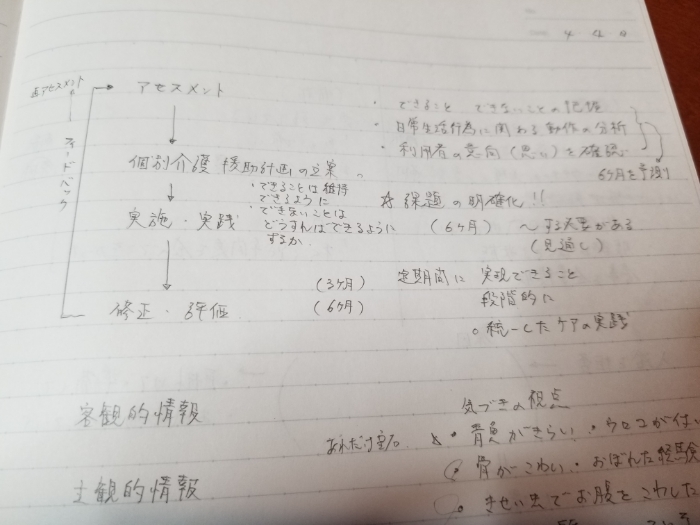 再アセスメント
アセスメント
フィードバック
・できること できないことの把握
・日常生活行為に関わる動作の分析
・利用者の意向(思い)を確認
6ヶ月を予測
個別介護 援助計画の立案
・できることは維持
できるように
・できないことは
どうすればできるように
するか
☆課題の明確化!!
実施・実践
(6ヶ月) 〜する必要がある
(見通し)
(3ヶ月) 定期間に 実現できること
(6ヶ月) 段階的に
修正・評価
○統一したケアの実践
客観的情報
気づきの視点
・青魚がきらい・ウロコが
主観的情報
・骨がこわい・おぼれた経験
・きせい虫でお腹をこわした